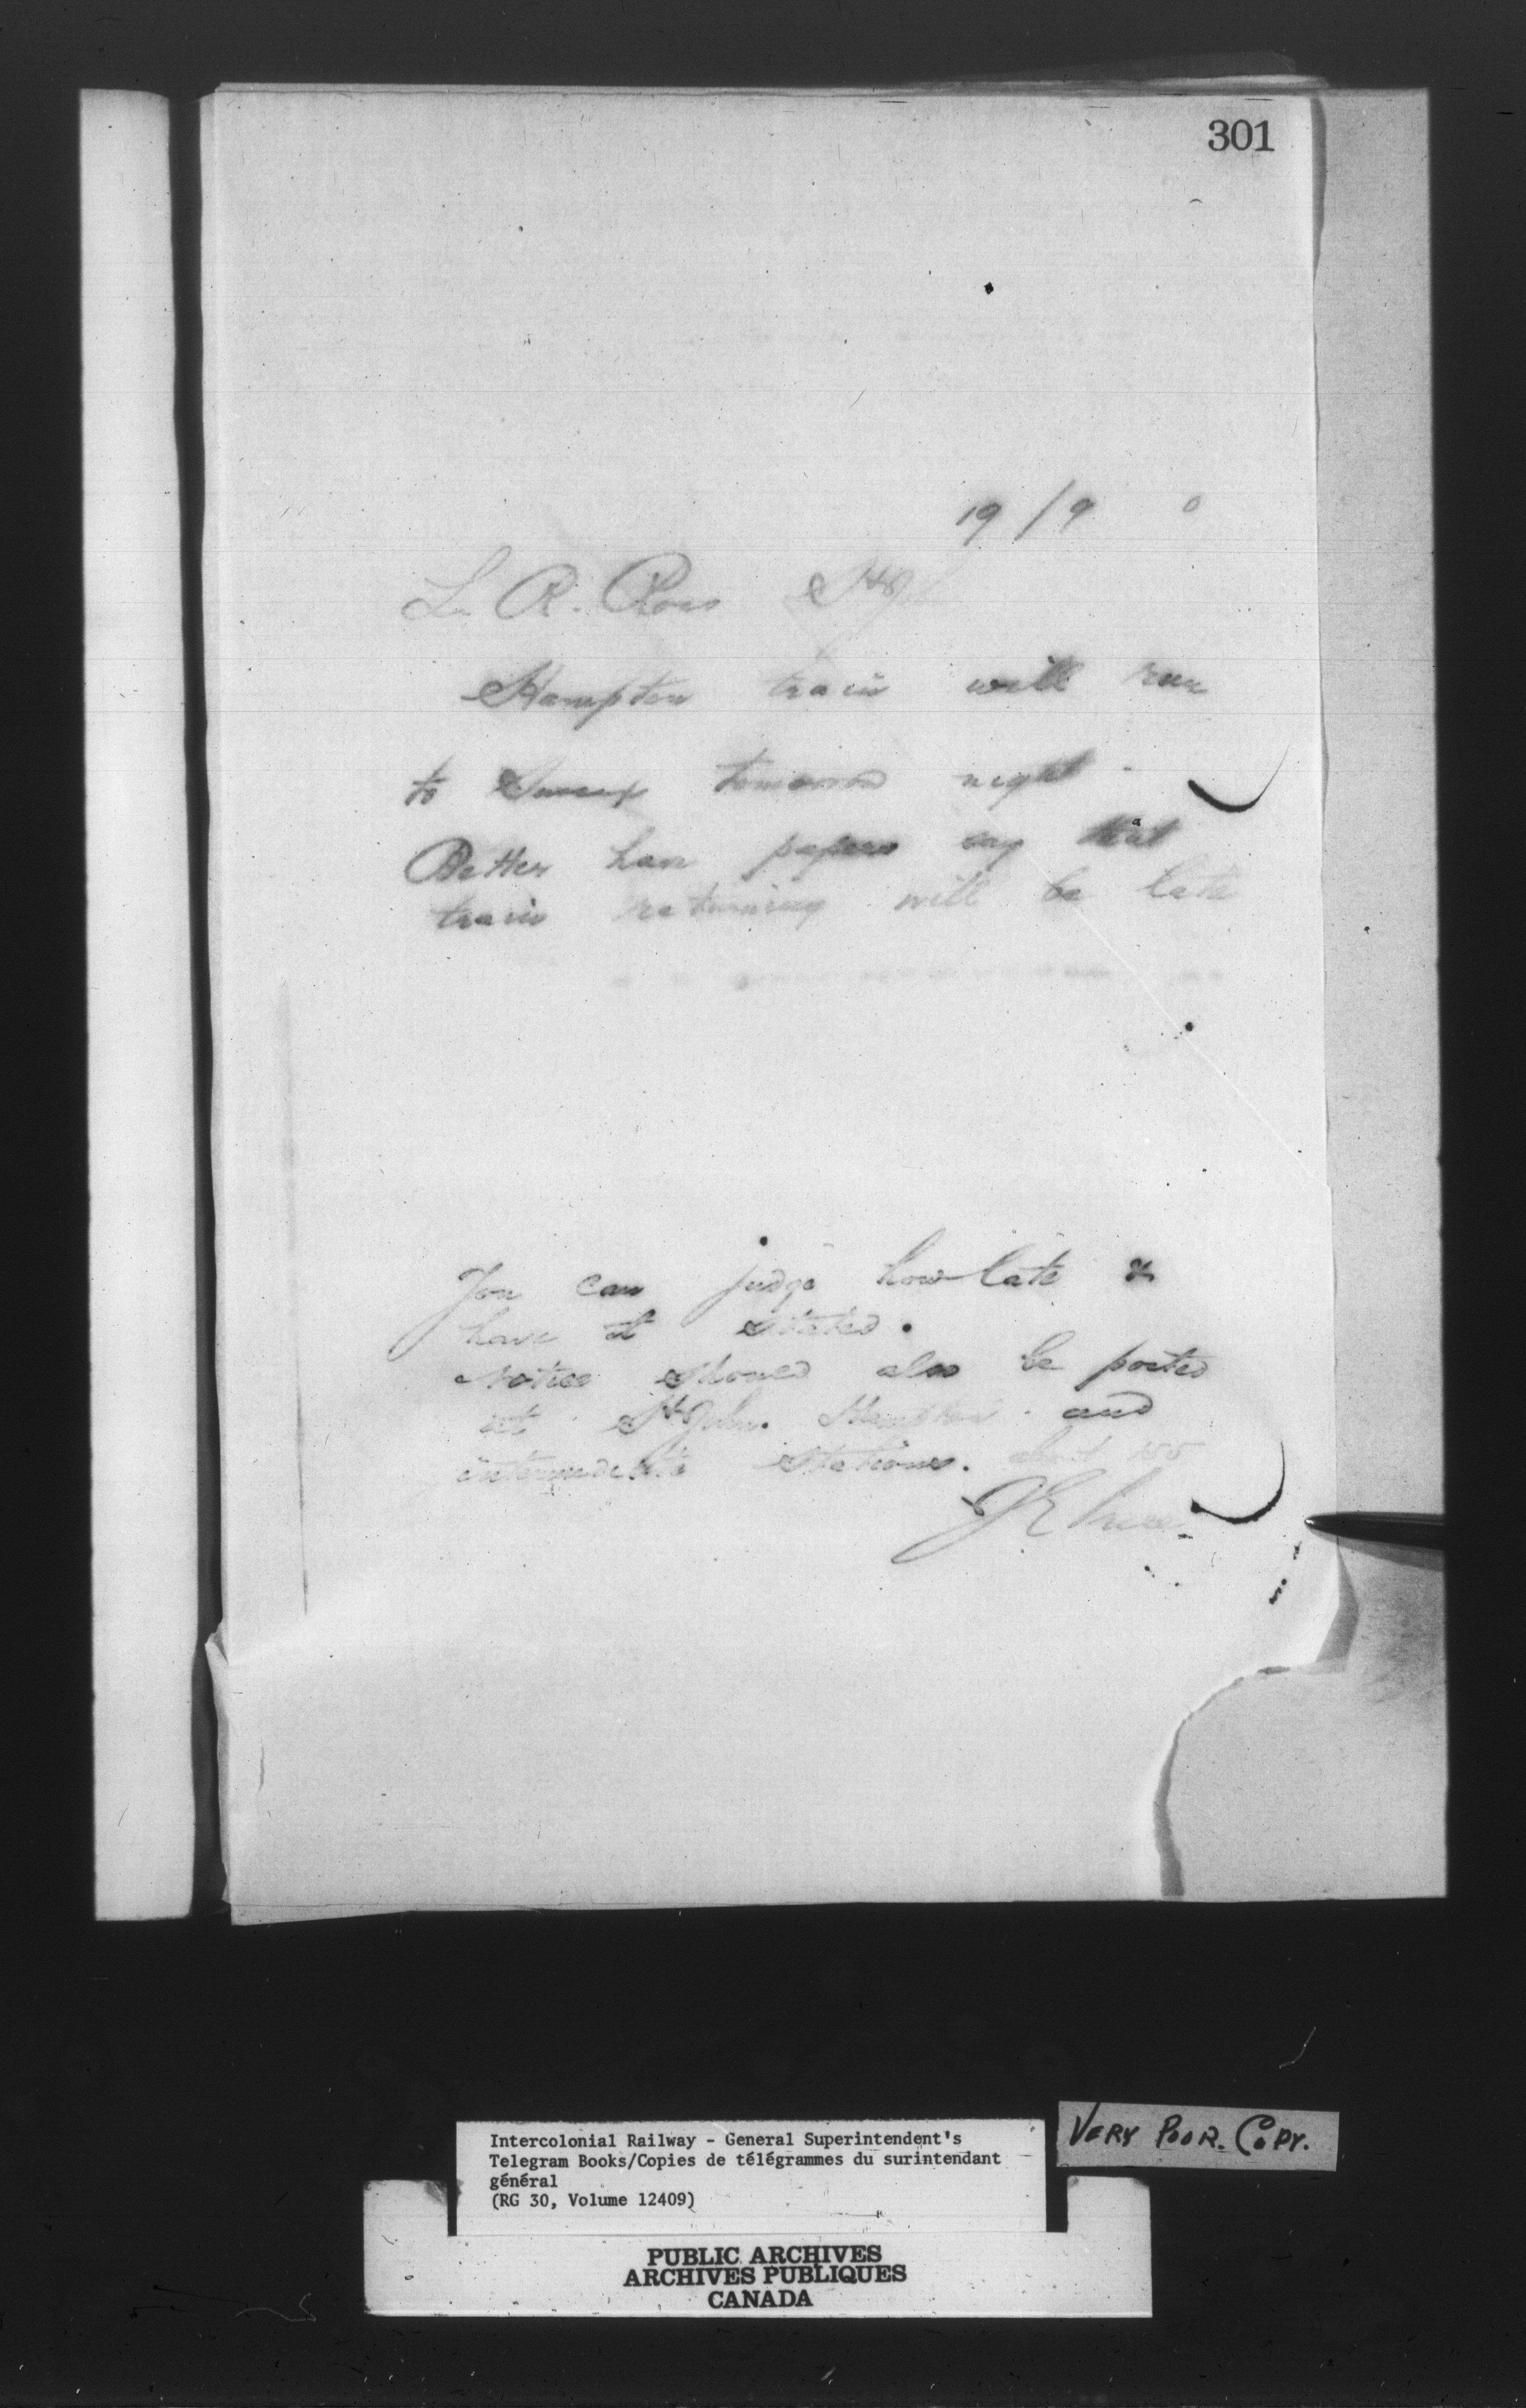 301
19/9
L. R. Ross St J
Hampton train will run
to Sussex tomorrow night -
Better have papers say that
train returning will be late
You can judge how late &
have it stated.
Notice should also be posted
at St John. Hampton and
intermediate stations.
VERY POOR. COPY.
Intercolonial Railway - General Superintendent's
Telegram Books/Copies de télégrammes du surintendant
général
(RG 30, Volume 12409)
PUBLIC ARCHIVES
ARCHIVES PUBLIQUES
CANADA